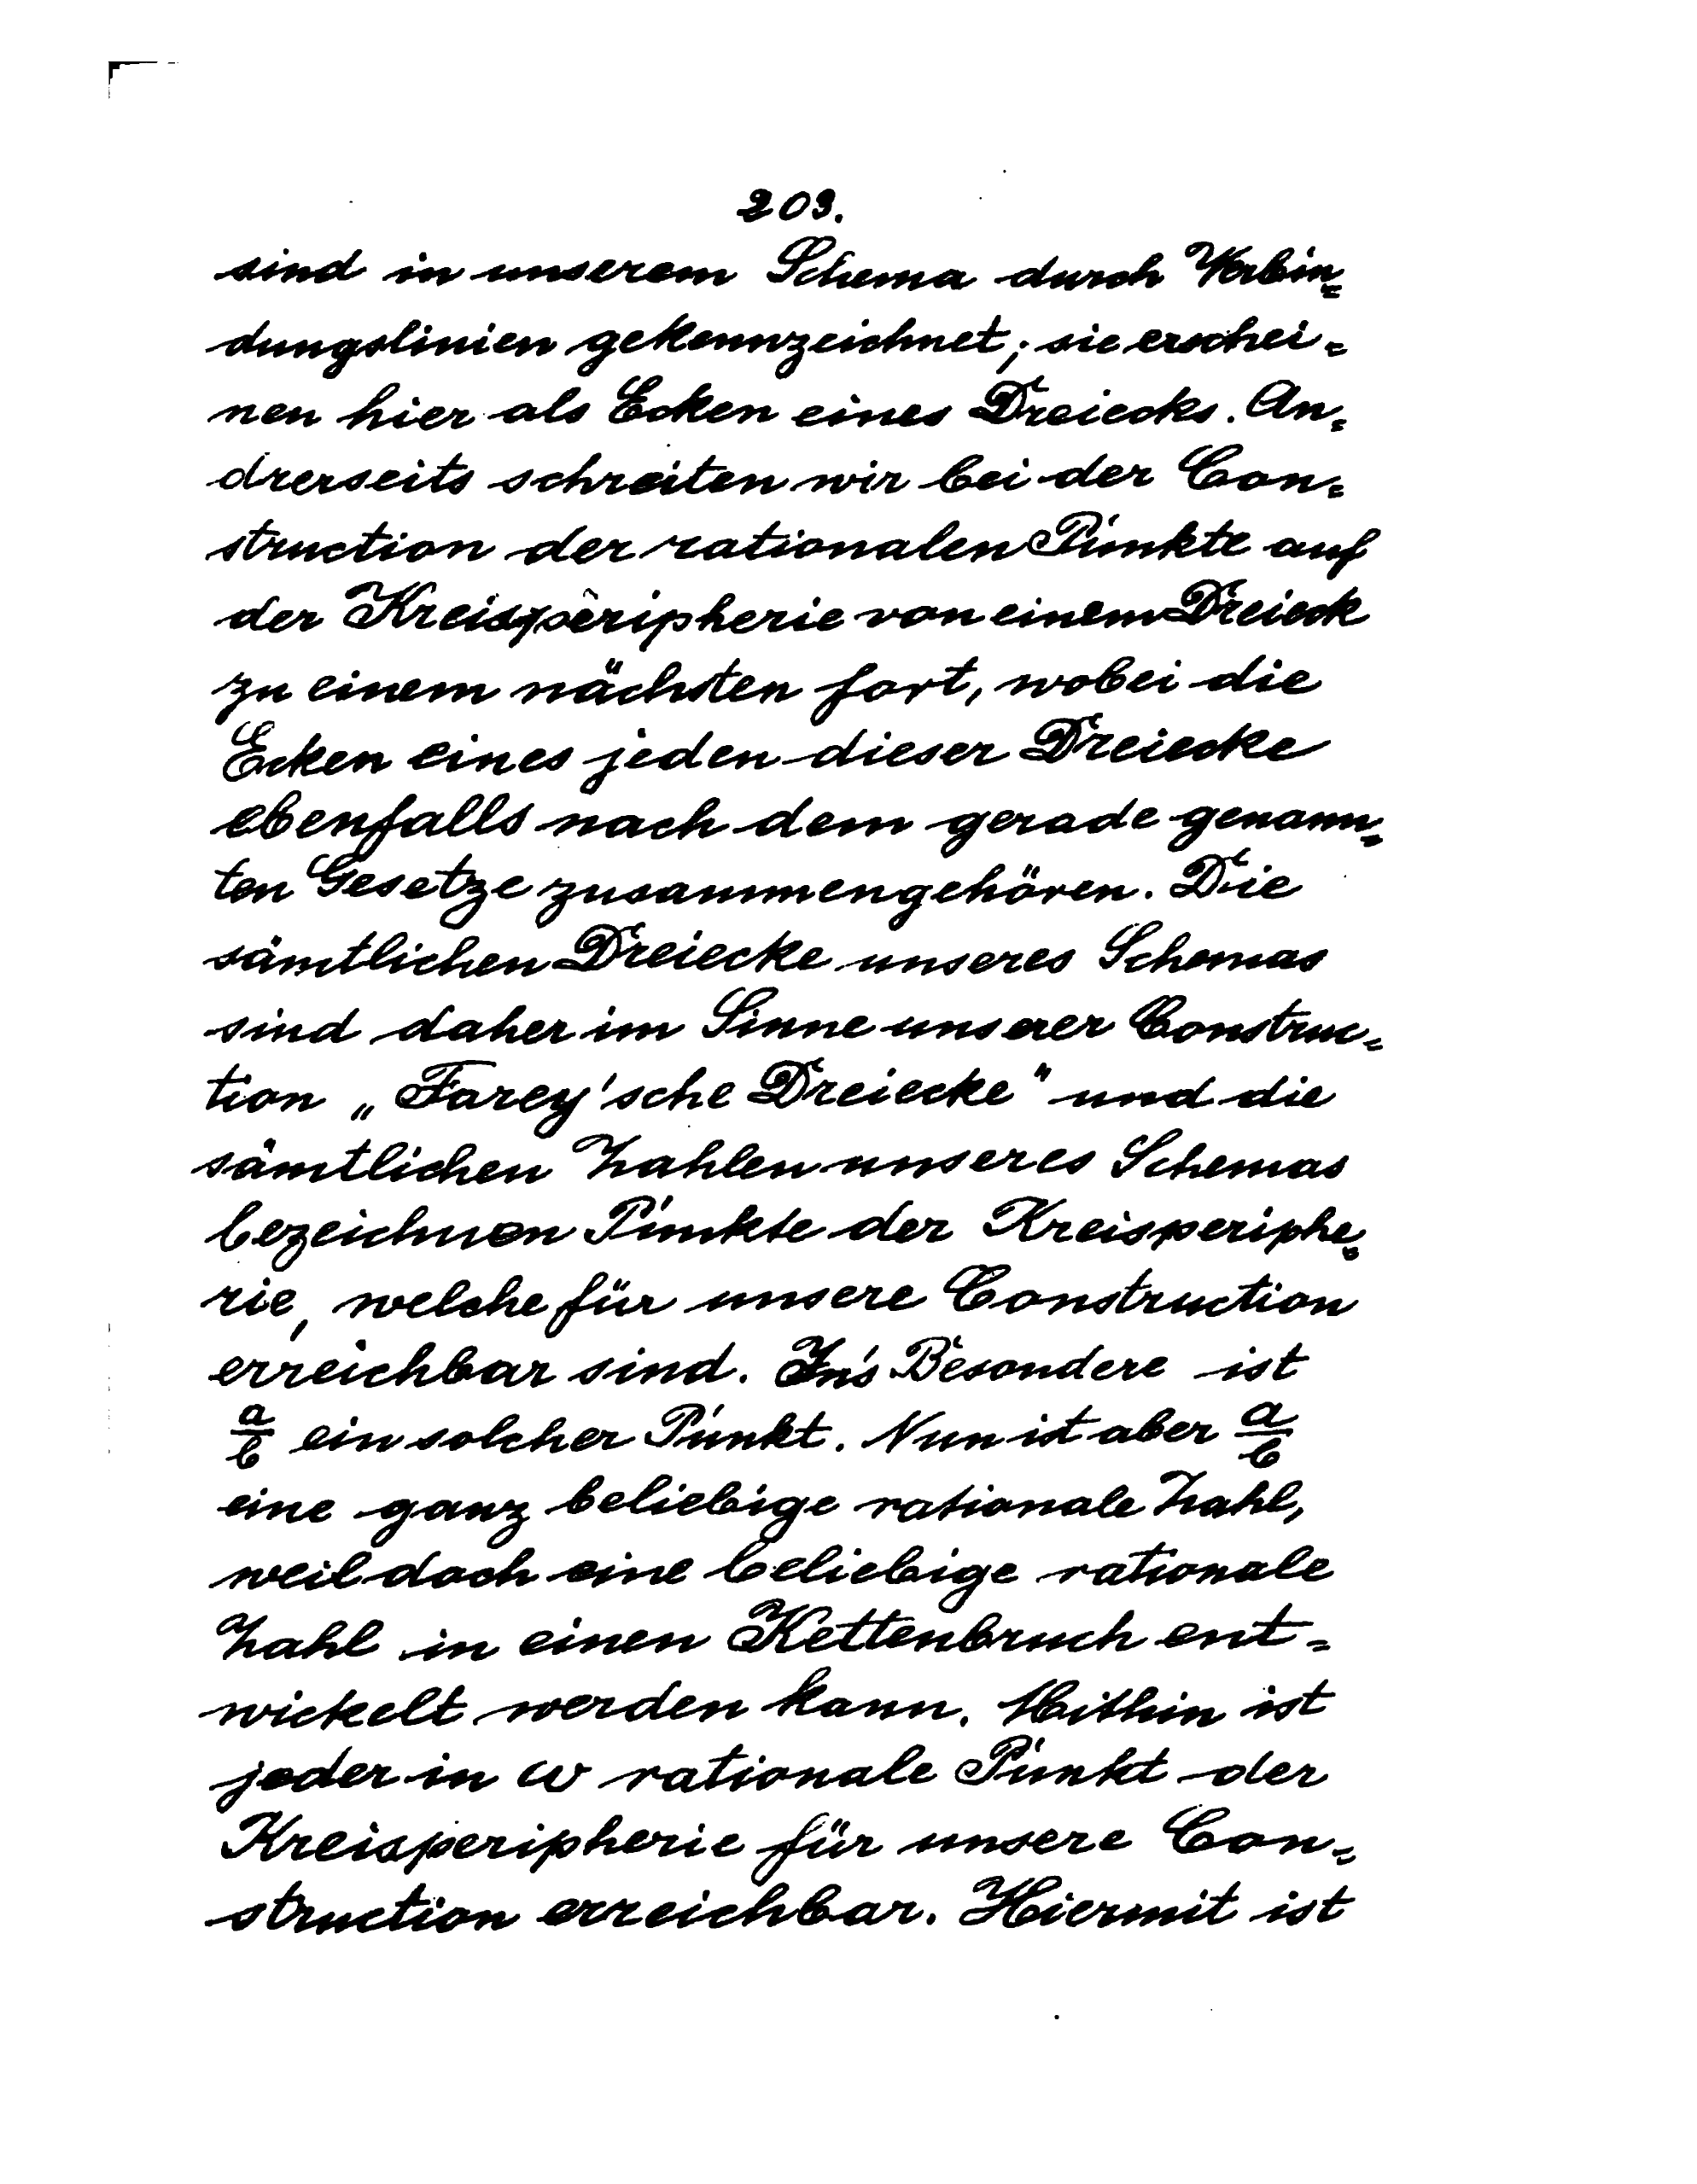 203.
sind in unserem Schema durch Verbin=
dungslinien gekennzeichnet; sie erschei=
nen hier als Ecken eines Dreiecks. An=
drerseits schreiten wir bei der Con=
struction der rationalen Punkte auf
der Kreisperipherie von einem Dreieck
zu einem nächsten fort, wobei die
Ecken eines jeden dieser Dreiecke
ebenfalls nach dem gerade genann=
ten Gesetze zusammengehören. Die
sämtlichen Dreiecke unseres Schemas
sind daher im Sinne unserer Construc=
tion „Farey'sche Dreiecke" und die
sämtlichen Zahlen unseres Schemas
bezeichnen Punkte der Kreisperiphe=
rie, welche für unsere Construction
erreichbar sind. In's Besondere ist
a/b ein solcher Punkt. Nun ist aber a/b
eine ganz beliebige rationale Zahl,
weil doch eine beliebige rationale
Zahl in einen Kettenbruch ent=
wickelt werden kann. Mithin ist
jeder in ω rationale Punkt der
Kreisperipherie für unsere Con=
struction erreichbar. Hiermit ist